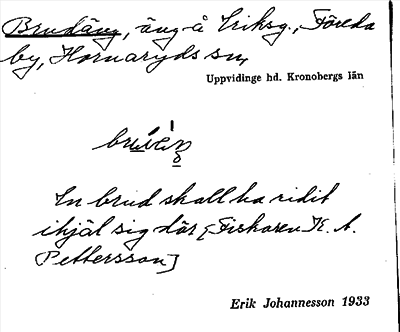 Brudäng, äng å Eriksg., Föreda
by, Hornaryds sn,
Uppvidinge hd. Kronobergs län
En brud skall ha ridit
ihjäl sig där [Fiskaren K. A.
Pettersson]
Erik Johannesson 1933